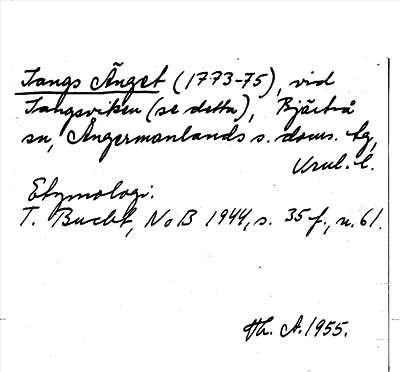 Tangs Änget (1773-75), vid
Tangsviken (se detta), Bjärtrå
sn, Ångermanlands s. doms. tg,
Vrul. l.
Etymologi:
T. Bucht, NoB 1944, s. 35 f., n. 61.
Th. A. 1955.